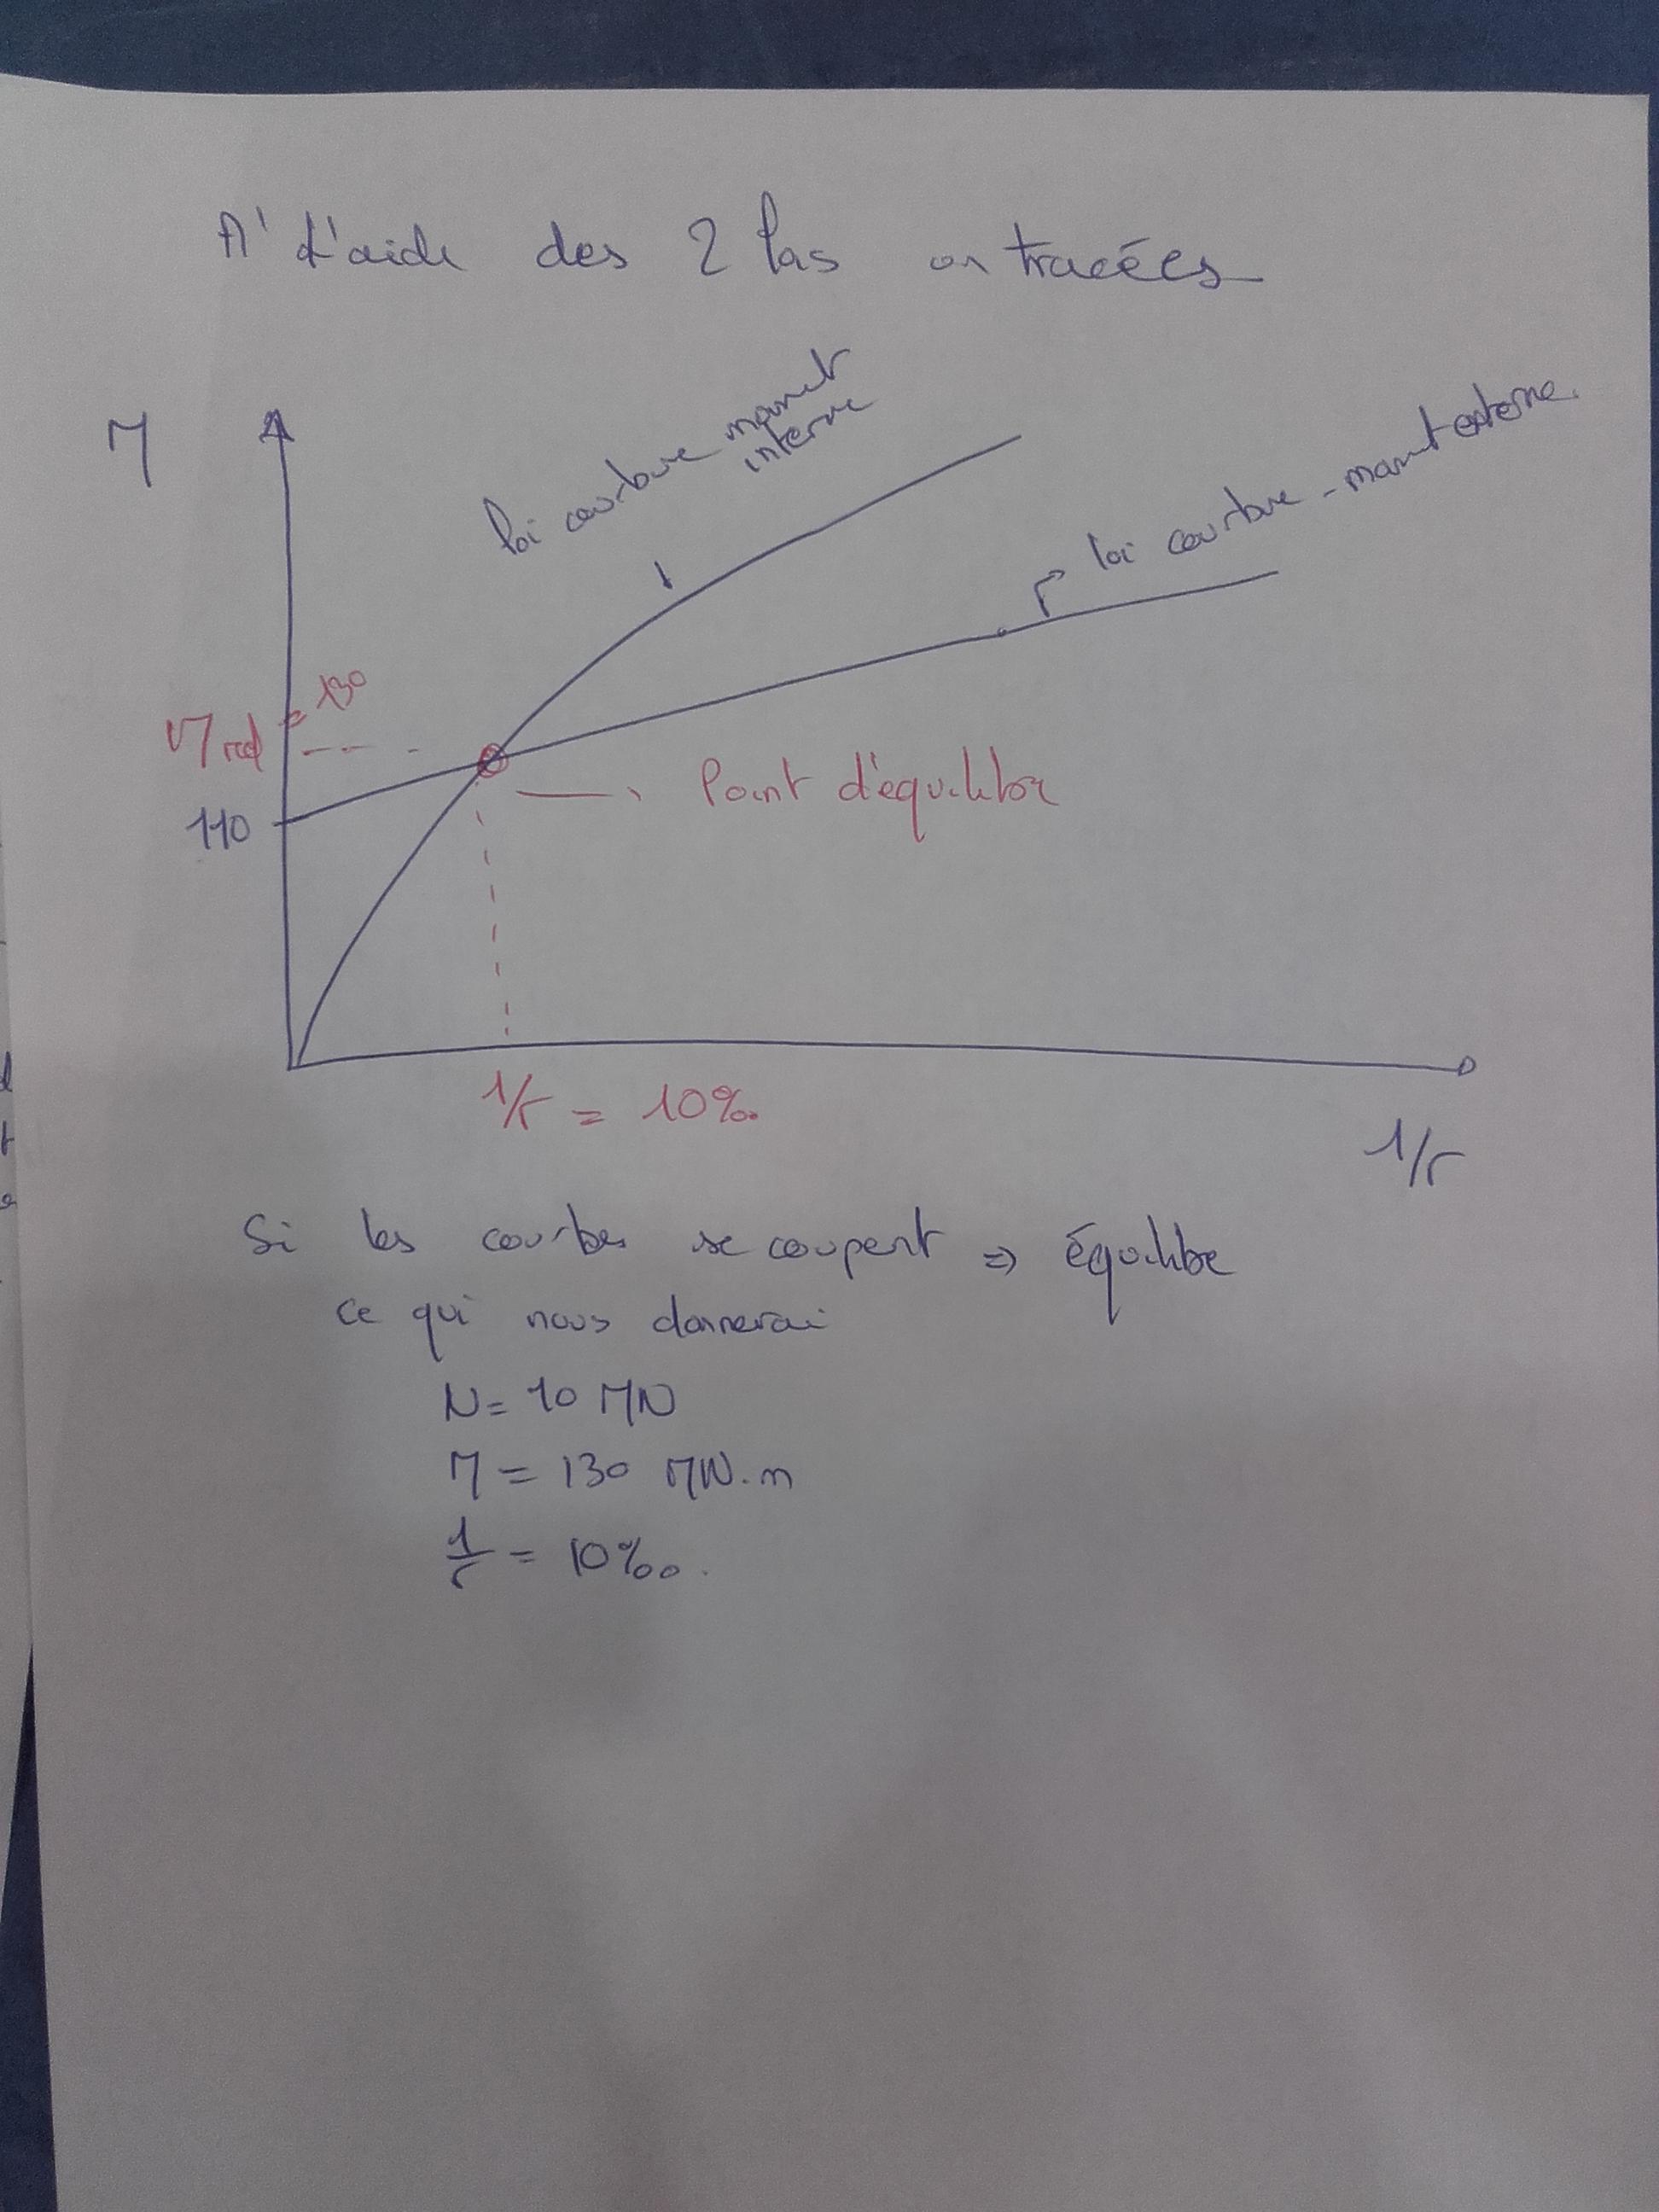 A' l'aide des 2 lois on tracées
M
loi courbure moment
interne
loi courbure - moment externe.
130
M red
110
Point d'équilibre
1/r = 10‰
1/r
Si les courbes se coupent => équilibre
ce qui nous donnerai
N = 10 MN
M = 130 MN.m
1/r = 10‰.